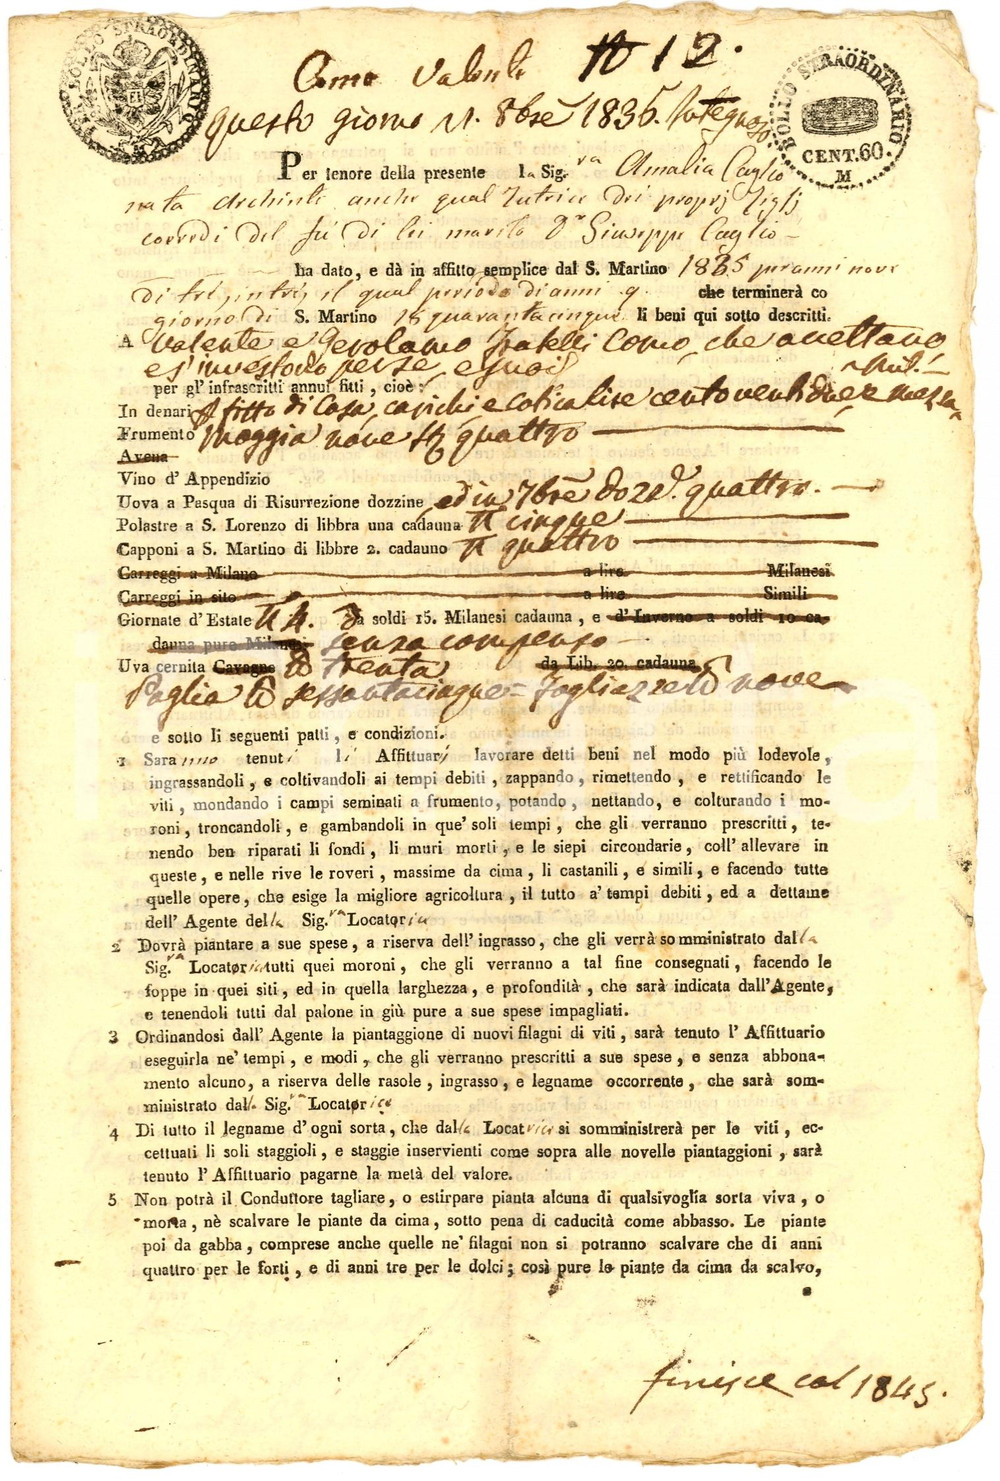 PER BOLLO STRAORDINARIO
BOLLO STRAORDINARIO
CENT. 60.
M
Como Valente N 12.
questo giorno 8bre 1836.
Per tenore della presente la Sig.ra Amalia Caglio
nata Archinti anche qual Tutrice dei proprj Figlj
coeredi del fu di lei marito Dr Giuseppe Caglio
ha dato, e dà in affitto semplice dal S. Martino 1835 per anni nove
di tre, in tre, il qual periodo di anni 9. che terminerà co
giorno di S. Martino quarantacinque li beni qui sotto descritti.
A Valente e Gerolamo Fratelli Como, che accettano
e s'investono per se, e suoi
per gl' infrascritti annui fitti, cioè: Mil.i
In denari fitto di Casa, carichi e cotica lire cento venti due e mezza
Frumento Moggia nove St quattro
Avena
Vino d' Appendizio
Uova a Pasqua di Risurrezione dozzine, ed in 7bre doze. quattro.
Polastre a S. Lorenzo di libbra una cadauna N cinque
Capponi a S. Martino di libbre 2. cadauno N quattro
Carreggi a Milano a lire Milanesi
Carreggi in sito a lire Simili
Giornate d' Estate N 4. da soldi 15. Milanesi cadauna, e d' Inverno a soldi 10 ca-
dauna pure Milanesi senza compenso
Uva cernita Cavagne trenta da Lib. 20. cadauna
Paglia sessantacinque = nove
e sotto li seguenti patti, e condizioni.
1 Saranno tenuti li Affittuarj lavorare detti beni nel modo più lodevole,
ingrassandoli, e coltivandoli ai tempi debiti, zappando, rimettendo, e rettificando le
viti, mondando i campi seminati a frumento, potando, nettando, e colturando i mo-
roni, troncandoli, e gambandoli in que' soli tempi, che gli verranno prescritti, te-
nendo ben riparati li fondi, li muri morti, e le siepi circondarie, coll' allevare in
queste, e nelle rive le roveri, massime da cima, li castanili, e simili, e facendo tutte
quelle opere, che esige la migliore agricoltura, il tutto a' tempi debiti, ed a dettame
dell' Agente della Sig.ra Locatoria
2 Dovrà piantare a sue spese, a riserva dell' ingrasso, che gli verrà somministrato dalla
Sig.ra Locatoria tutti quei moroni, che gli verranno a tal fine consegnati, facendo le
foppe in quei siti, ed in quella larghezza, e profondità, che sarà indicata dall'Agente,
e tenendoli tutti dal palone in giù pure a sue spese impagliati.
3 Ordinandosi dall' Agente la piantaggione di nuovi filagni di viti, sarà tenuto l' Affittuario
eseguirla ne' tempi, e modi, che gli verranno prescritti a sue spese, e senza abbona-
mento alcuno, a riserva delle rasole, ingrasso, e legname occorrente, che sarà som-
ministrato dalla Sig.ra Locatorice
4 Di tutto il legname d' ogni sorta, che dalla Locatrice si somministrerà per le viti, ec-
cettuati li soli staggioli, e staggie inservienti come sopra alle novelle piantaggioni, sarà
tenuto l' Affittuario pagarne la metà del valore.
5 Non potrà il Conduttore tagliare, o estirpare pianta alcuna di qualsivoglia sorta viva, o
morta, nè scalvare le piante da cima, sotto pena di caducità come abbasso. Le piante
poi da gabba, comprese anche quelle ne' filagni non si potranno scalvare che di anni
quattro per le forti, e di anni tre per le dolci; così pure le piante da cima da scalvo,
finisce col 1845.